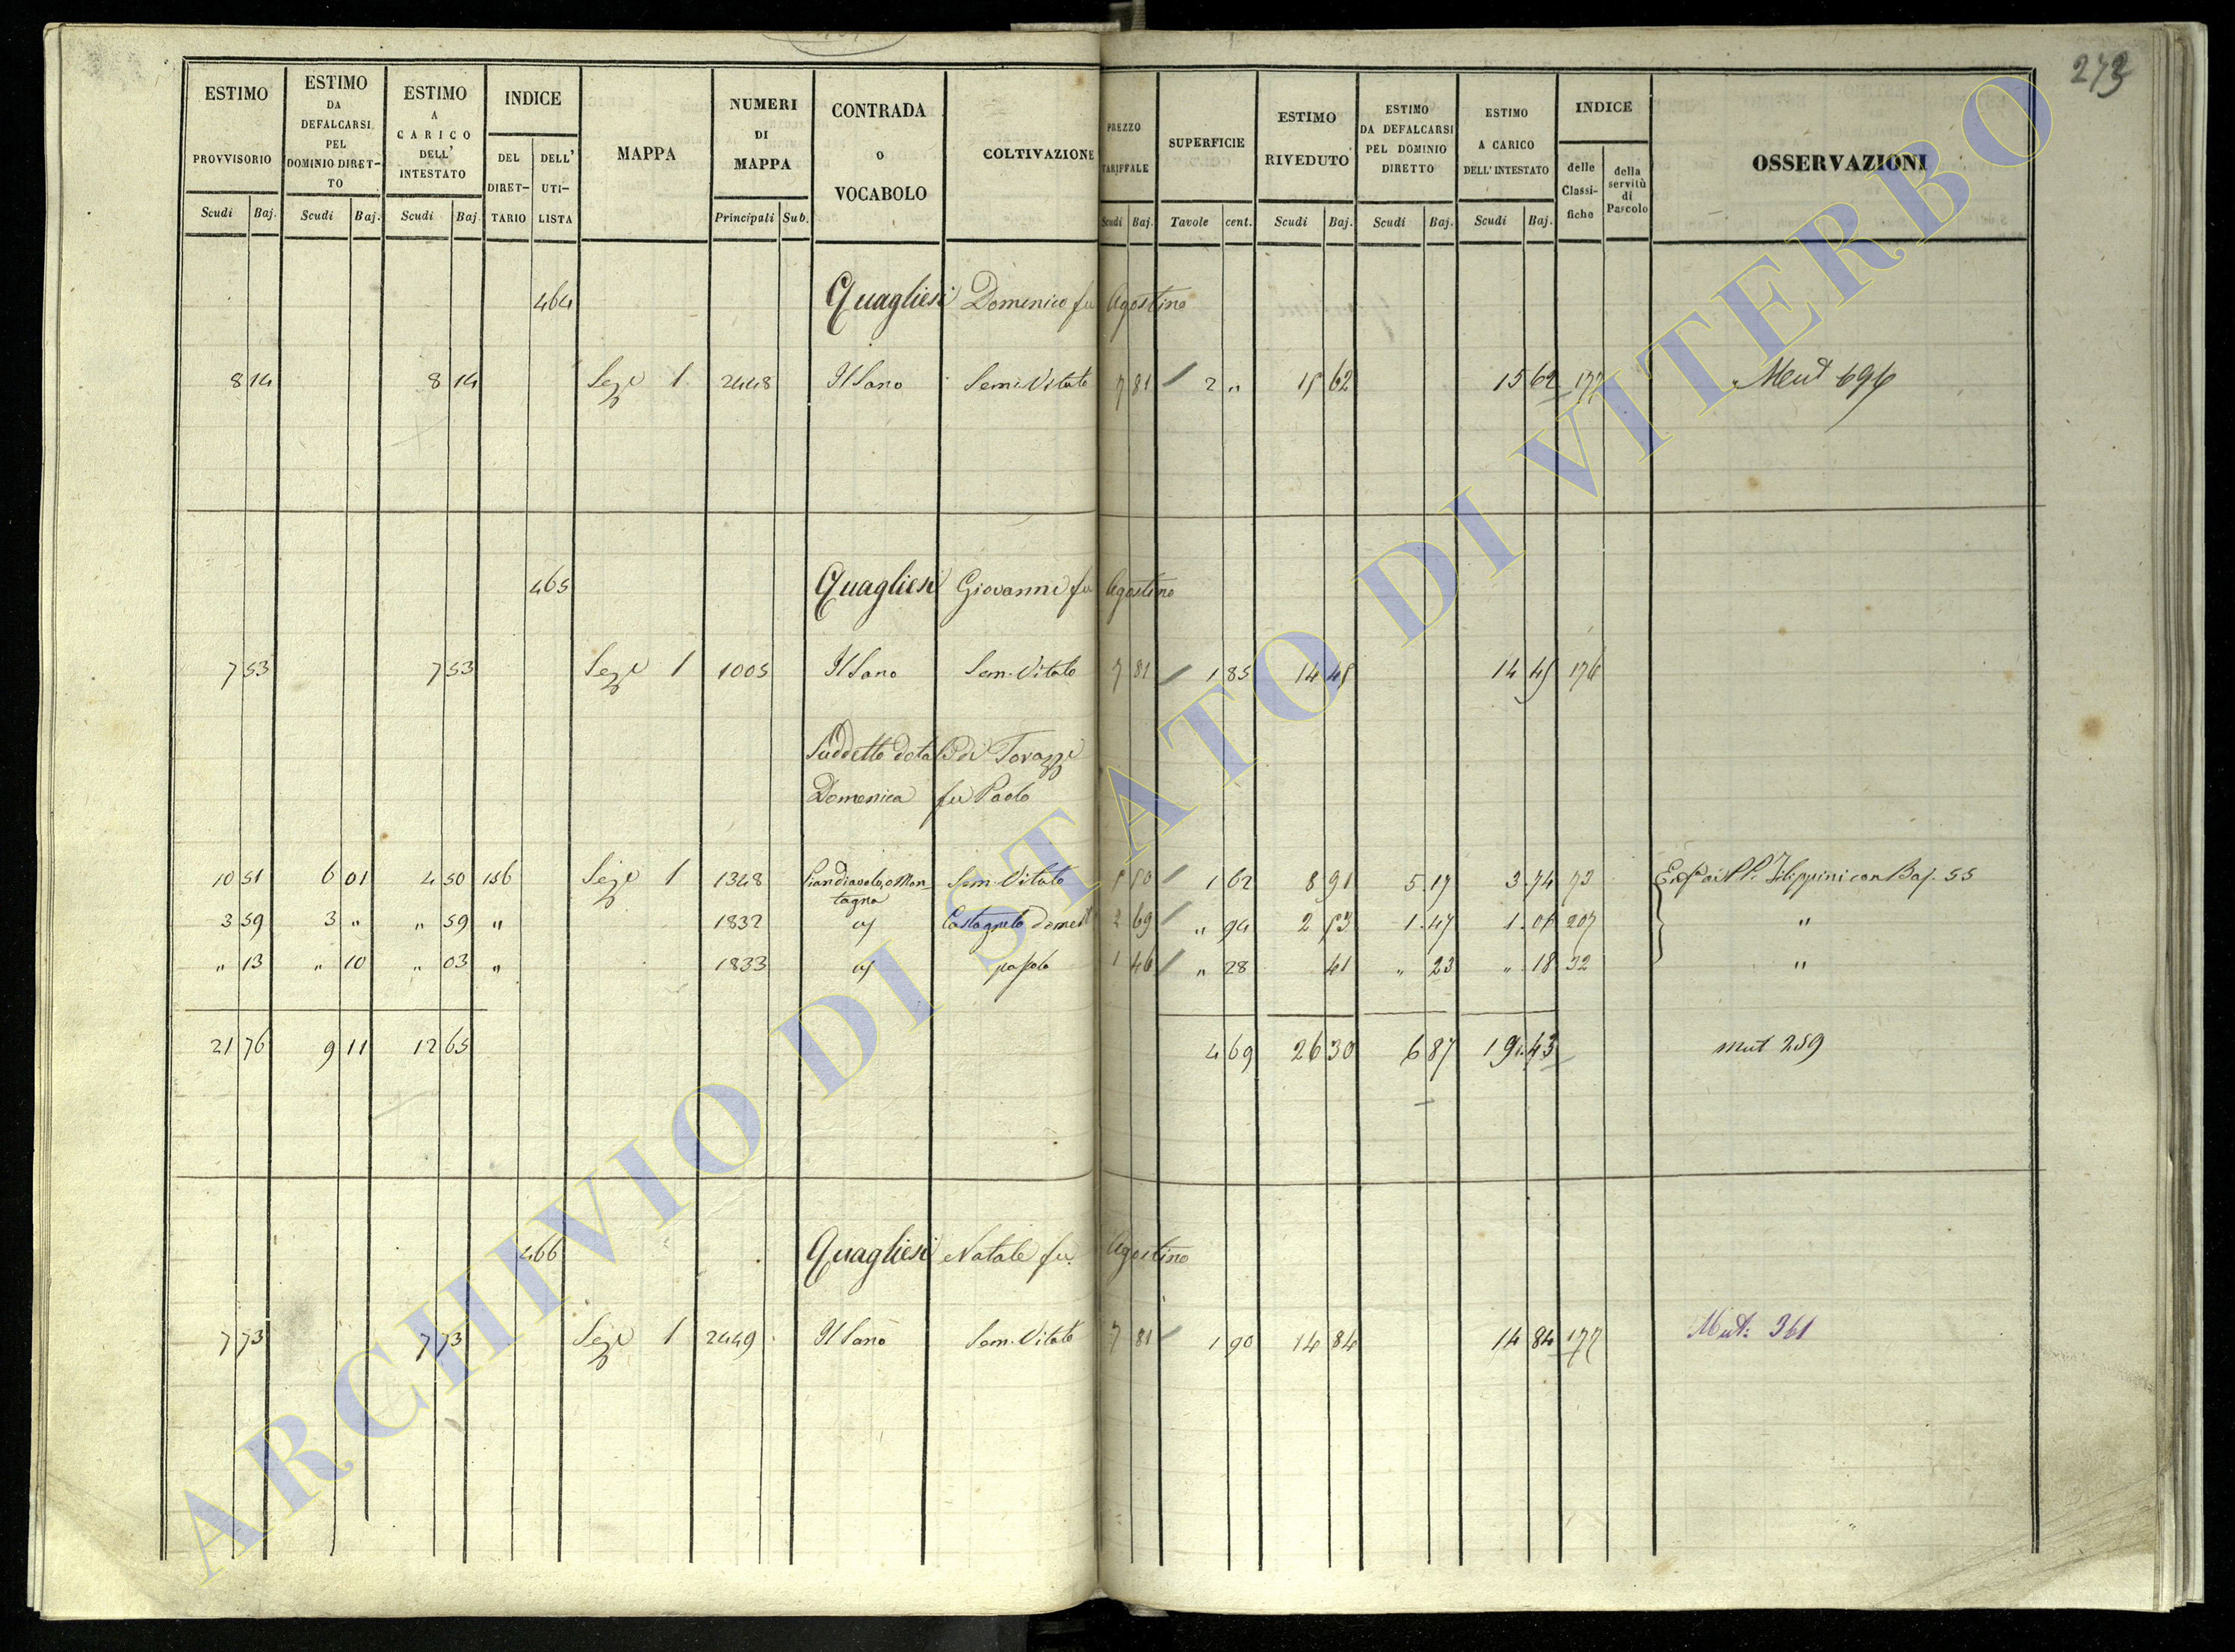 273
ESTIMO PROVVISORIO
ESTIMO DA DEFALCARSI PEL DOMINIO DIRET-TO
ESTIMO A CARICO DELL' INTESTATO
INDICE
DEL DIRET-TARIO
DELL' UTI-LISTA
MAPPA
NUMERI DI MAPPA
CONTRADA O VOCABOLO
COLTIVAZIONE
PREZZO TARIFFALE
SUPERFICIE
ESTIMO RIVEDUTO
ESTIMO DA DEFALCARSI PEL DOMINIO DIRETTO
ESTIMO A CARICO DELL' INTESTATO
INDICE
delle Classi-fiche
della servitù di Pascolo
OSSERVAZIONI
Scudi Baj. Scudi Baj. Scudi Baj. Principali Sub. Scudi Baj. Tavole cent. Scudi Baj. Scudi Baj. Scudi Baj.
464 Quagliesi Domenico fu Agostino
8 14 8 14 Sezᵉ 1 2448 Il Sano Sem. Vitato 7 81 2 " 15 62 15 62 177 Mut 696
465 Quagliesi Giovanni fu Agostino
7 53 7 53 Sezᵉ 1 1005 Il Sano Sem. Vitato 7 81 1 85 14 45 14 45 176
Suddetto dota di Torazzi
Domenica fu Paolo
10 51 6 01 4 50 156 Sezᵉ 1 1348 Piandiavolo, o Mon Sem. Vitato 5 50 1 62 8 91 5 17 3 74 73 PP. Filippini con Baj. 55
tagna
3 59 3 " " 59 " 1832 Castagneto domest 2 69 " 94 2 53 1 47 1 06 207 "
" 13 " 10 " 03 " 1833 pascolo 1 46 " 28 41 " 23 " 18 32 "
21 76 9 11 12 65 4 69 26 30 6 87 19 43 mut 259
466 Quagliesi Natale fu Agostino
7 73 7 73 Sezᵉ 1 2449 Il Sano Sem. Vitato 7 81 1 90 14 84 14 84 177 Mut: 361
ARCHIVIO DI STATO DI VITERBO